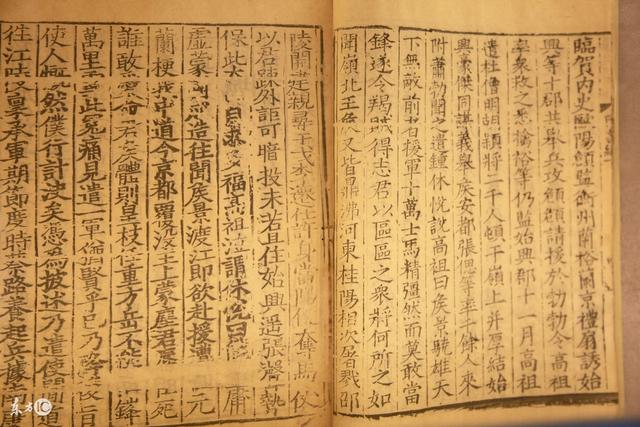 臨賀內史歐陽頠監衡州蘭裕蘭京禮扇誘始
興等十郡共舉兵攻頠頠請援於勃勃令高祖
率衆救之悉擒裕等仍監始興郡十一月高祖
遣杜僧明胡穎將二千人頓于嶺上并厚結始
興豪傑同謀義舉侯安都張偲等率千餘人來
附蕭勃聞之遣鍾休悅說高祖曰侯景驍雄天
下無敵前者援軍十萬士馬精彊然而莫敢當
鋒遂令羯賊得志君以區區之衆將何所之如
聞嶺北王侯又皆鼎沸河東桂陽相次屠戮邵
陵開建親尋干戈李遷仕許身當陽便奪馬仗
以君疎外詎可暗投未若且住始興遙張聲勢
保此太山自求多福高祖泣謂休悅曰庸
虛蒙國成造往聞侯景渡江即欲赴援遭元
蘭梗我中道今京都覆沒主上蒙塵君辱臣死
誰敢愛命君侯體則皇枝任重方岳不能鋒
萬里雪此冤痛見遣一軍猶賢乎已乃旨
使人慨然僕行計決矣憑爲披述乃遣使間道
往江陵稟承軍期節度時蔡路養起兵據南
东方IC